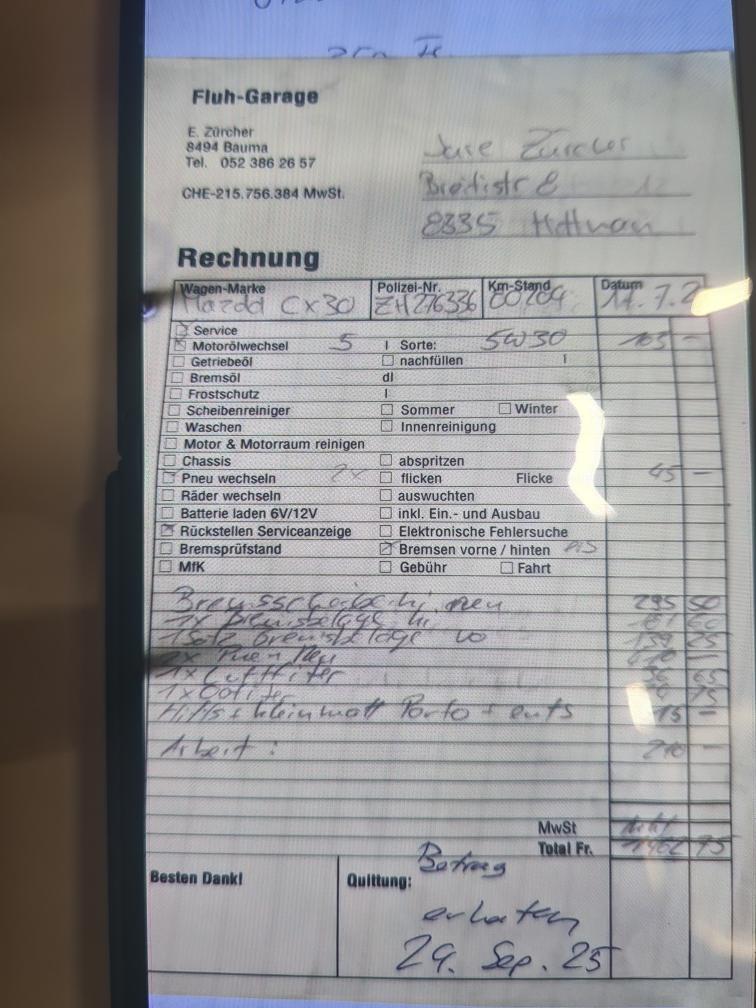 Fluh-Garage
E. Zürcher
8494 Bauma
Tel. 052 386 26 57
CHE-215.756.384 MwSt.
Zürcher
8335
Rechnung
Wagen-Marke Polizei-Nr. Km-Stand Datum
Mazda CX30 ZH 276336 11.7.2
Service
Motorölwechsel 5 l Sorte: 5W30 105 –
Getriebeöl nachfüllen l
Bremsöl dl
Frostschutz l
Scheibenreiniger Sommer Winter
Waschen Innenreinigung
Motor & Motorraum reinigen
Chassis abspritzen
Pneu wechseln 2x flicken Flicke 45 –
Räder wechseln auswuchten
Batterie laden 6V/12V inkl. Ein.- und Ausbau
Rückstellen Serviceanzeige Elektronische Fehlersuche
Bremsprüfstand Bremsen vorne / hinten
MfK Gebühr Fahrt
neu 295 50
1x Bremsbeläge hi 60
1 Satz Bremsbeläge vo 139 25
2x
1x Luftfilter 65
1x Ölfilter 75
Porto + ents 15 –
Arbeit: 210 –
MwSt
Total Fr. 75
Besten Dank!
Quittung: Betrag
erhalten
29. Sep. 25